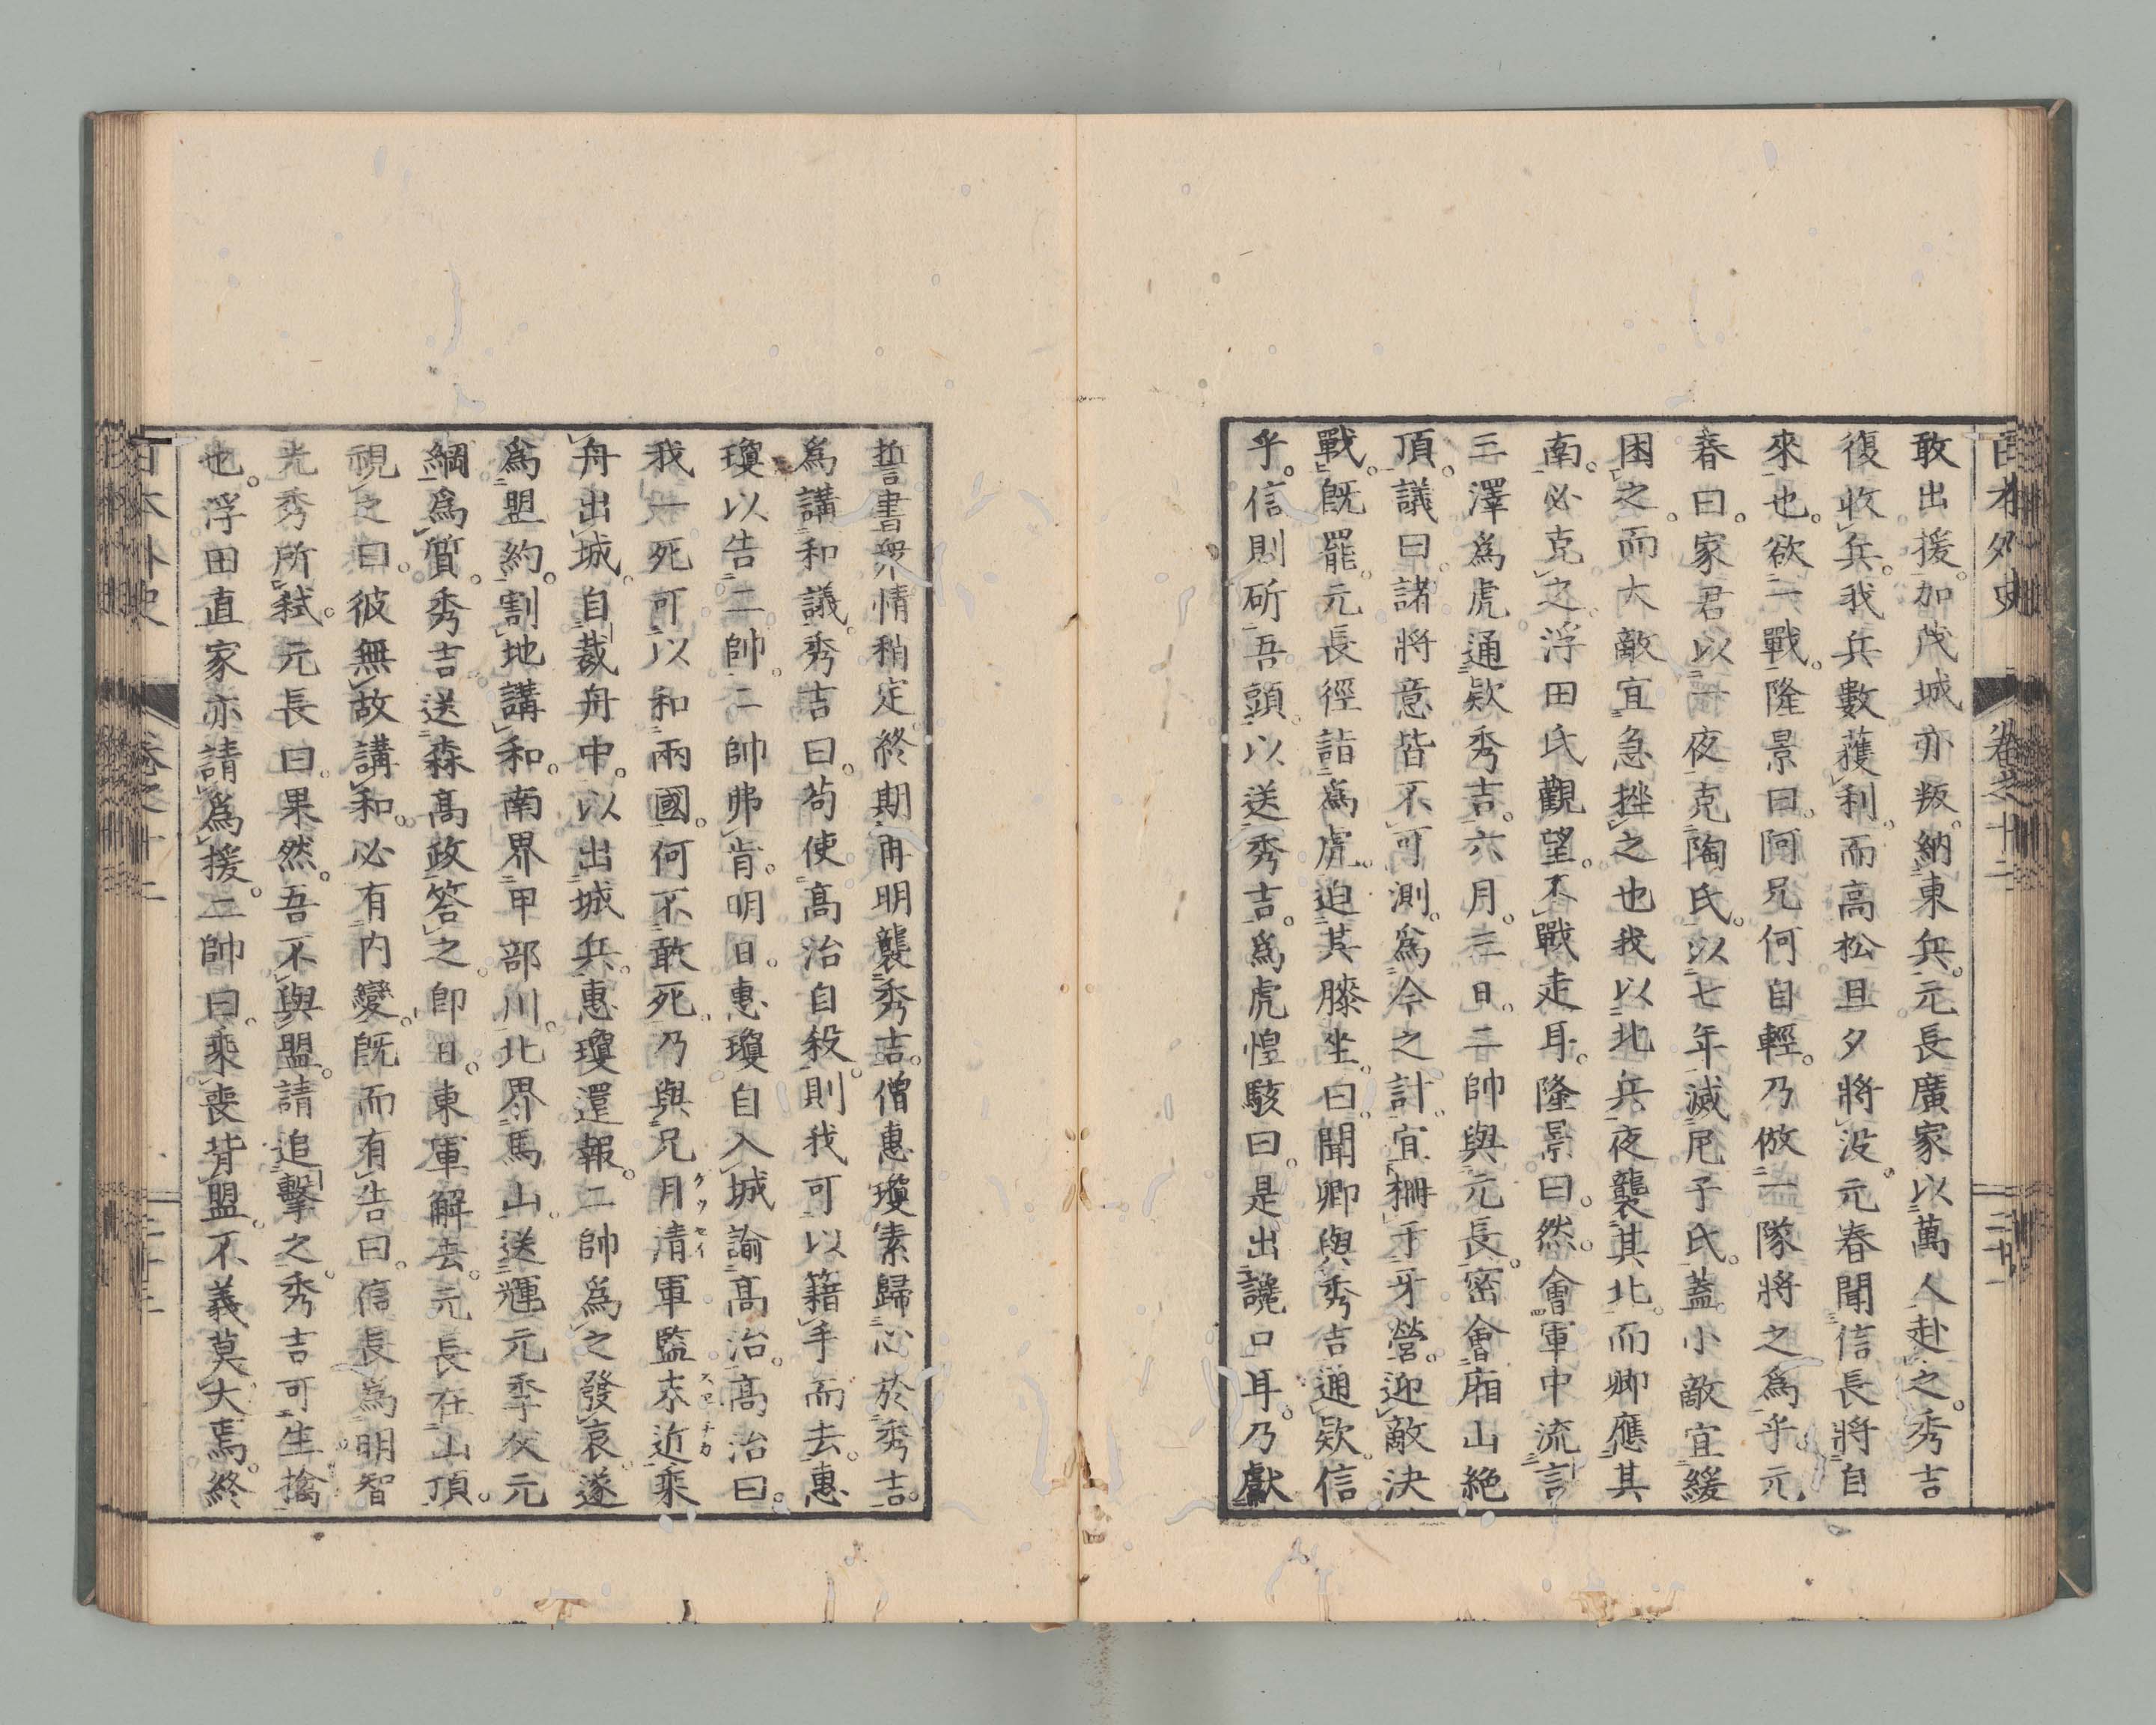 日本外史 卷之十二 二十二
敢出援。加茂城亦叛。納東兵。元長廣家以萬人赴之。秀吉
復收兵。我兵數獲利。而高松旦夕將没。元春聞信長將自
來也。欲一戰。隆景曰。阿兄何自輕。乃倣一隊將之爲乎。元
春曰。家君以一夜克陶氏。以七年滅尼子氏。蓋小敵宜緩
困之。而大敵宜急挫之也。我以北兵夜襲其北。而卿應其
南。必克之。浮田氏觀望。不戰走耳。隆景曰。然。會軍中流言
三澤爲虎通欵秀吉。六月。三日。二帥與元長。密會廂山絶
頂。議曰。諸將意皆不可測。爲今之計。宜柵于牙營。迎敵決
戰。既罷。元長徑詣爲虎。迫其膝坐。曰。聞卿與秀吉通欵。信
乎。信則斫吾頭。以送秀吉。爲虎惶駭曰。是出讒口耳。乃獻
誓書。衆情稍定。終期再明襲秀吉。僧惠瓊素歸心於秀吉。
爲講和議。秀吉曰。苟使高治自殺。則我可以籍手而去。惠
瓊以告二帥。二帥弗肯。明日。惠瓊自入城諭高治。高治曰。
我一死可以和兩國。何不敢死。乃與兄月清軍監末近乘
クワセイ スヱチカ
舟出城。自裁舟中。以出城兵。惠瓊還報。二帥爲之發哀。遂
爲盟約。割地講和。南界甲部川。北界馬山。送輝元季父元
綱爲質。秀吉送森高政答之。即日。東軍解去。元長在山頂。
視之曰。彼無故講和。必有内變。既而有告曰。信長爲明智
光秀所弑。元長曰。果然。吾不與盟。請追擊之。秀吉可生擒
也。浮田直家亦請爲援。二帥曰。乘喪背盟。不義莫大焉。終
日本外史 卷之十二 二十三